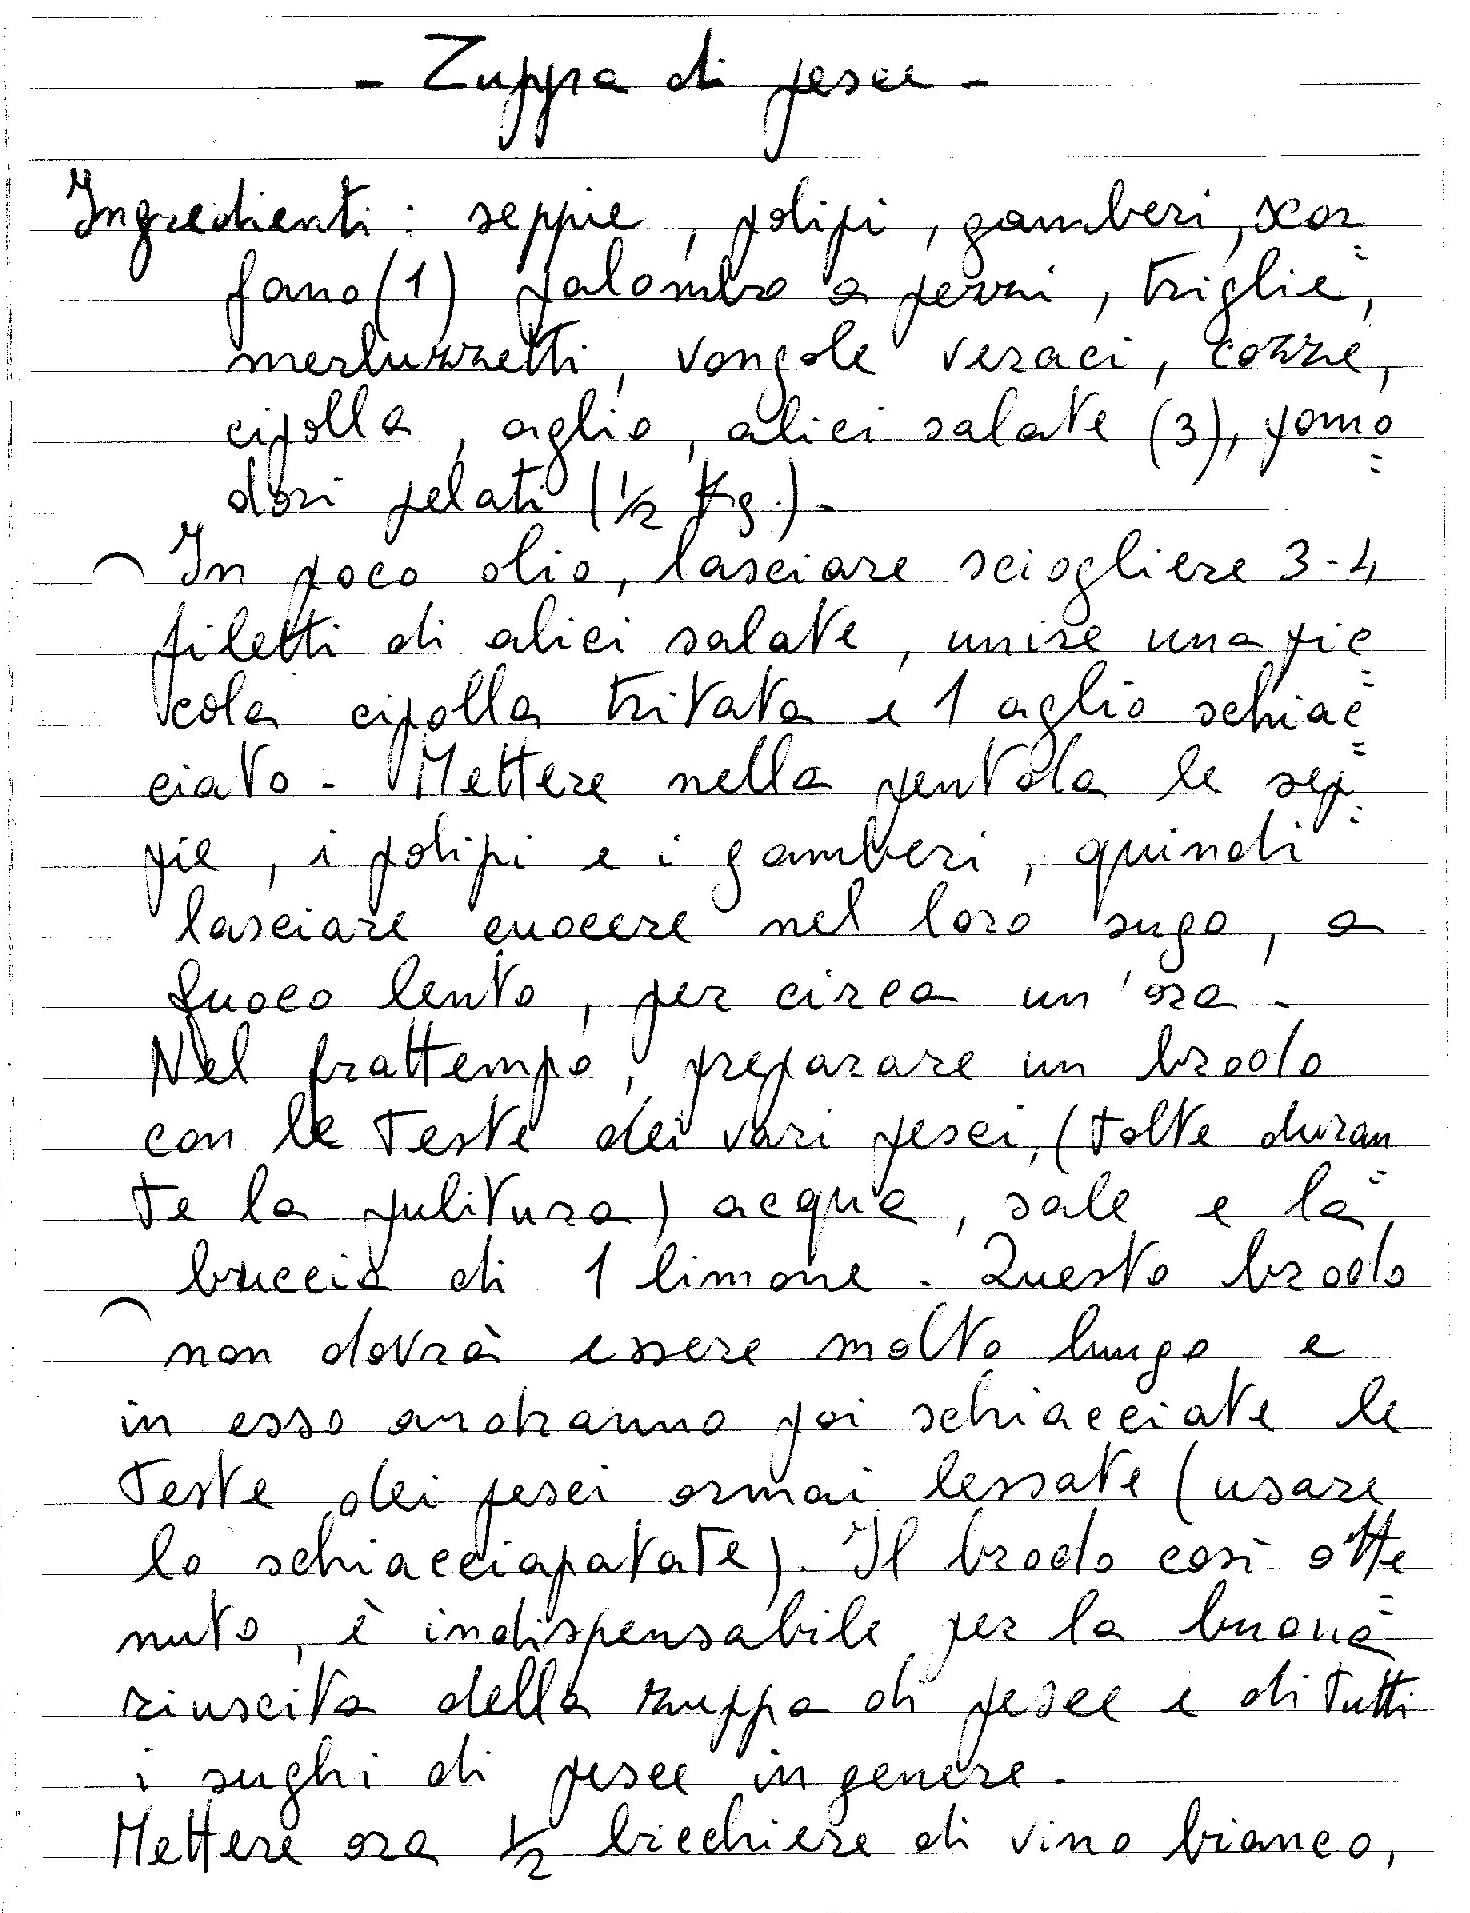 - Zuppa di pesce -
Ingredienti: seppie, polipi, gamberi, scor=
fano (1) palombo a pezzi, triglie,
merluzzetti, vongole veraci, cozze,
cipolla, aglio, alici salate (3), pomo=
dori pelati (1/2 Kg.).-
In poco olio, lasciare sciogliere 3-4
filetti di alici salate, unire una pic=
cola cipolla tritata e 1 aglio schiac=
ciato - Mettere nella pentola le sep=
pie, i polipi e i gamberi, quindi
lasciare cuocere nel loro sugo, a
fuoco lento, per circa un'ora -
Nel frattempo, preparare un brodo
con le teste dei vari pesci, (tolte duran=
te la pulitura) acqua, sale e la
buccia di 1 limone. Questo brodo
non dovrà essere molto lungo e
in esso andranno poi schiacciate le
teste dei pesci ormai lessate (usare
lo schiacciapatate). Il brodo così otte=
nuto, è indispensabile per la buona
riuscita della zuppa di pesce e di tutti
i sughi di pesce in genere.
Mettere ora 1/2 bicchiere di vino bianco,